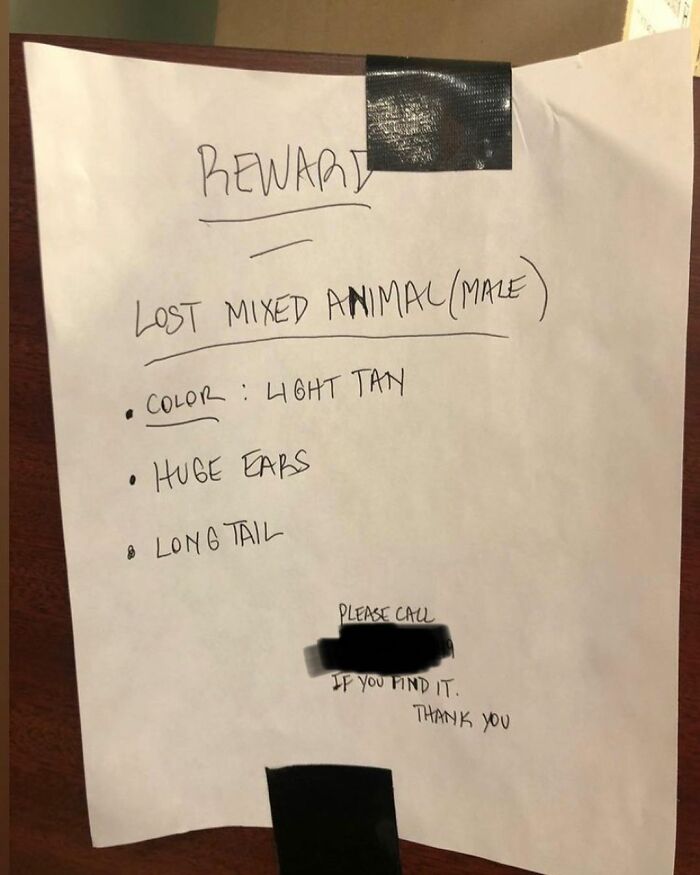 REWARD
LOST MIXED ANIMAL (MALE)
• COLOR : LIGHT TAN
• HUGE EARS
• LONG TAIL
PLEASE CALL
9
IF YOU FIND IT.
THANK YOU